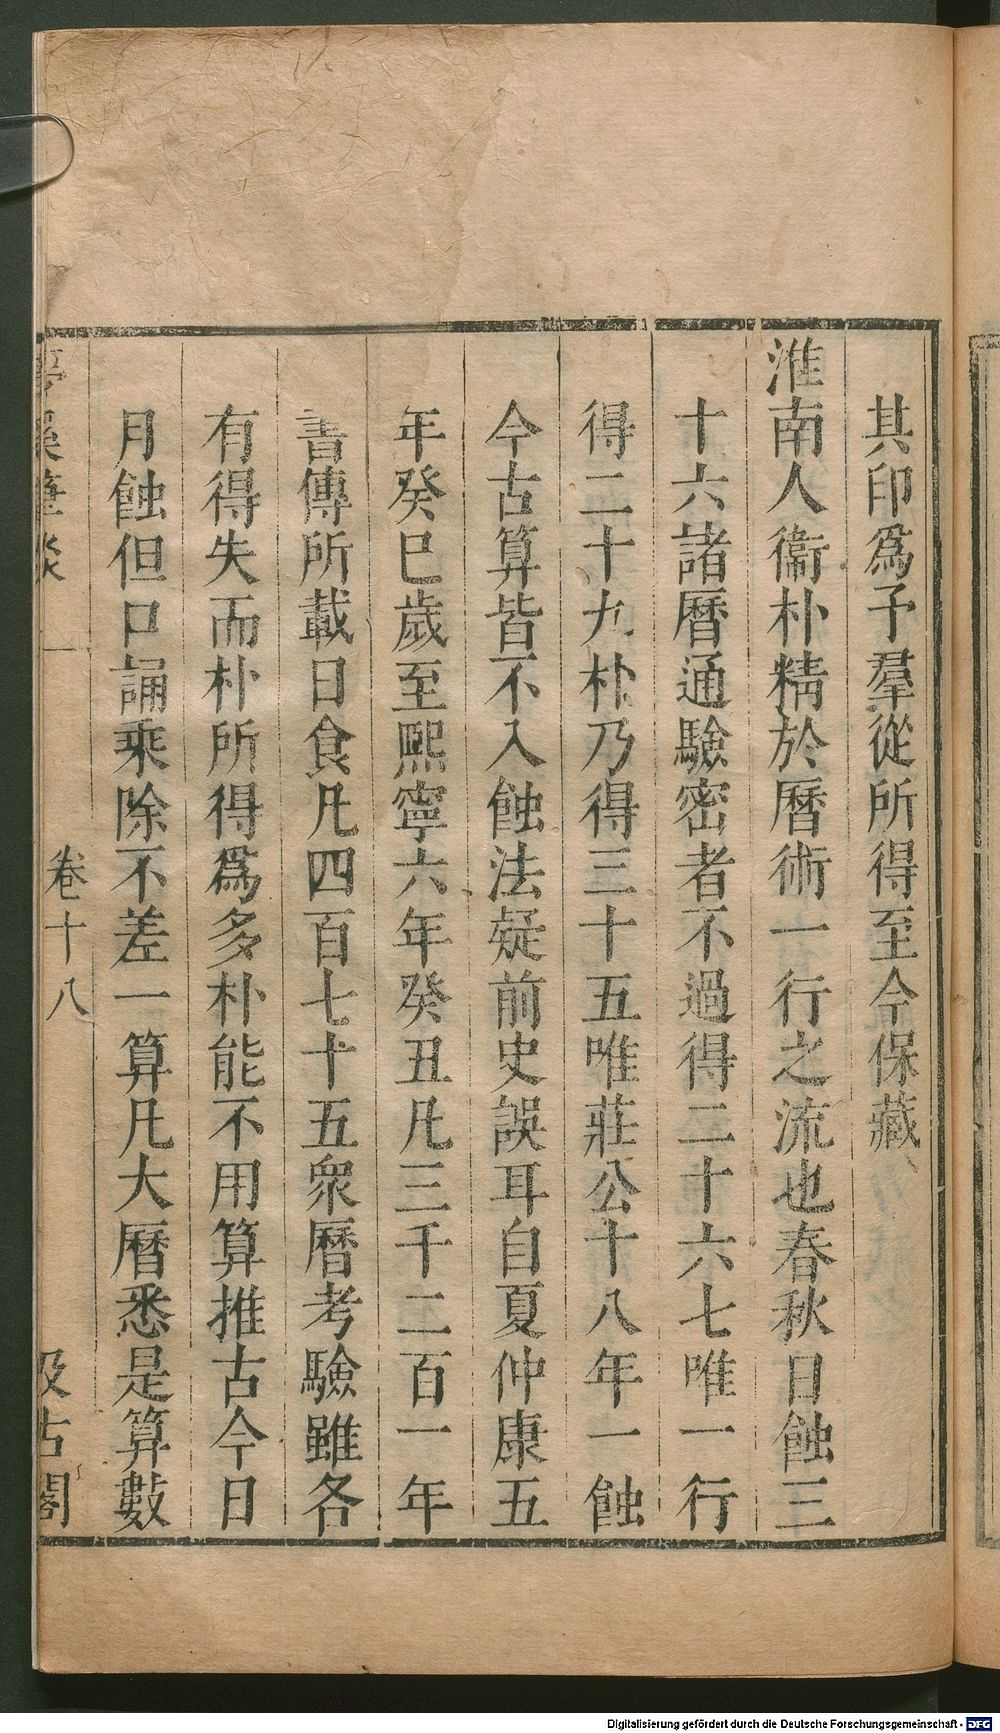 其印爲予羣從所得至今保藏
淮南人衞朴精於曆術一行之流也春秋日蝕三
十六諸曆通驗密者不過得二十六七唯一行
得二十九朴乃得三十五唯莊公十八年一蝕
今古算皆不入蝕法疑前史誤耳自夏仲康五
年癸巳歲至熙寧六年癸丑凡三千二百一年
書傳所載日食凡四百七十五衆曆考驗雖各
有得失而朴所得爲多朴能不用算推古今日
月蝕但口誦乘除不差一算凡大曆悉是算數
夢溪筆談 卷十八 汲古閣
Digitalisierung gefördert durch die Deutsche Forschungsgemeinschaft - DFG